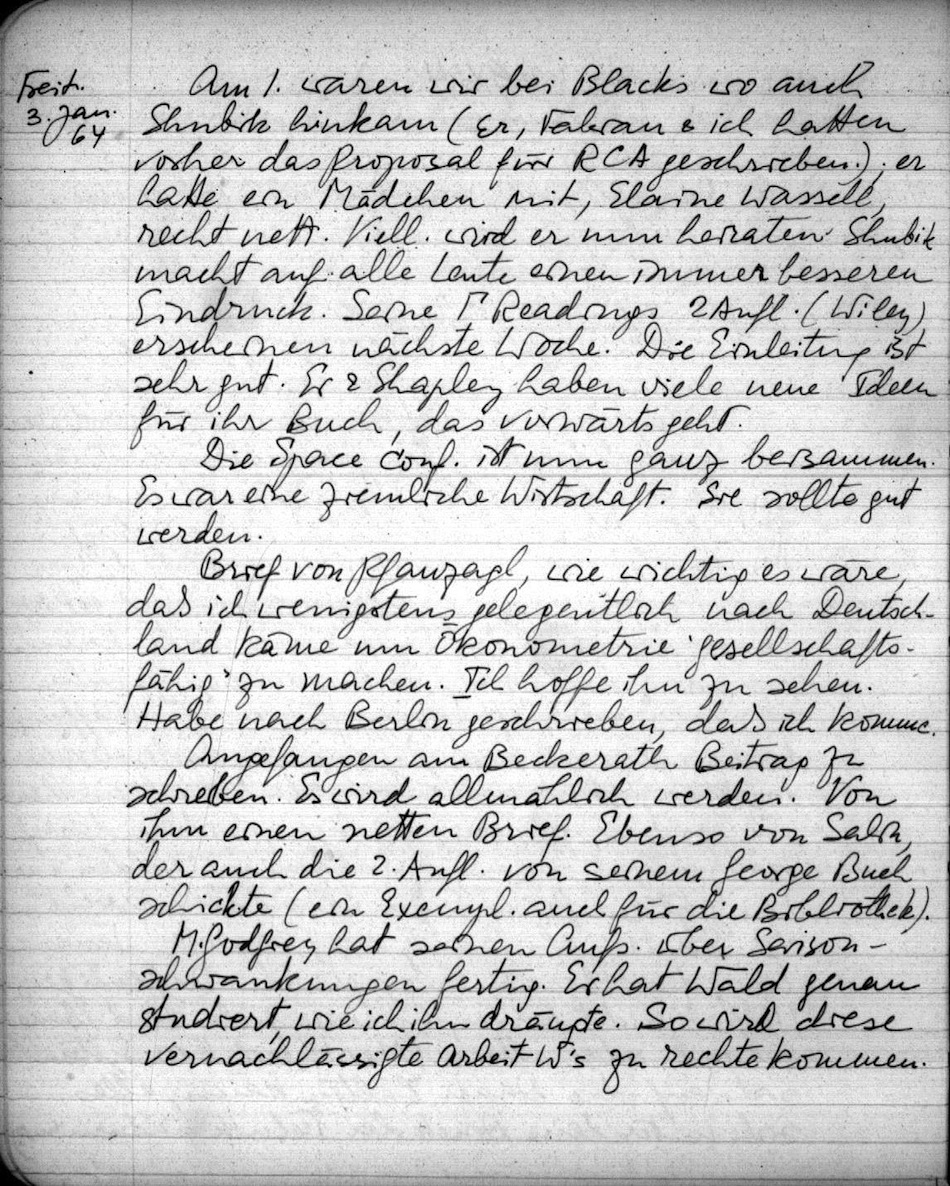 Freit.
3. Jan.
64
Am 1. waren wir bei Blacks wo auch
Shubik hinkam (Er, Fabian & ich hatten
vorher das Proposal für RCA geschrieben.); er
hatte ein Mädchen mit, Elaine Wassell,
recht nett. Viell. wird er nun heiraten. Shubik
macht auf alle Leute einen immer besseren
Eindruck. Seine Γ Readings 2 Aufl. (Wiley)
erscheinen nächste Woche. Die Einleitung ist
sehr gut. Er & Shapley haben viele neue Ideen
für ihr Buch, das vorwärts geht.
Die Space Conf. ist nun ganz beisammen.
Es war eine ziemliche Wirtschaft. Sie sollte gut
werden.
Brief von Pfanzagl, wie wichtig es wäre,
daß ich wenigstens gelegentlich nach Deutsch-
land käme um Ökonometrie "gesellschafts-
fähig" zu machen. Ich hoffe ihn zu sehen.
Habe nach Berlin geschrieben, daß ich komme.
Angefangen am Beckerath Beitrag zu
schreiben. Es wird allmählich werden. Von
ihm einen netten Brief. Ebenso von Salin,
der auch die 2. Aufl. von seinem George Buch
schickte (ein Exempl. auch für die Bibliothek).
M. Godfrey hat seinen Aufs. über Saison-
schwankungen fertig. Er hat Wald genau
studiert, wie ich ihn drängte. So wird diese
vernachlässigte Arbeit W's zu rechte kommen.